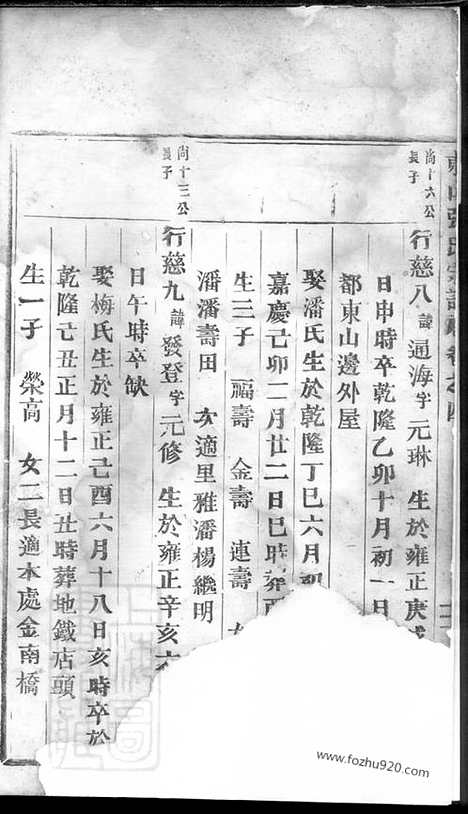 東山張氏宗譜 卷之四
尚十六公
長子
行慈八 諱 通海 字 元琳 生於雍正庚戌
日申時卒乾隆乙卯十月初一日
都東山邊外屋
娶潘氏生於乾隆丁巳六月初
嘉慶己卯二月廿二日巳時葬
生三子 福壽 金壽 連壽 女
潘潘壽田 次適里雅潘楊繼明
尚十三公
長子
行慈九 諱 發登 字 元修 生於雍正辛亥六
日午時卒缺
娶梅氏生於雍正己酉六月十八日亥時卒於
乾隆己丑正月十二日丑時葬地鐵店頭
生一子 榮高 女二長適本處金南橋
www.fozhu920.com